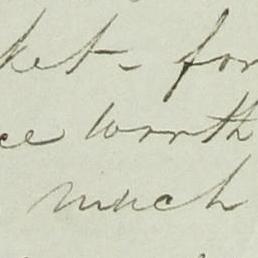 ket - for
ce worth
much